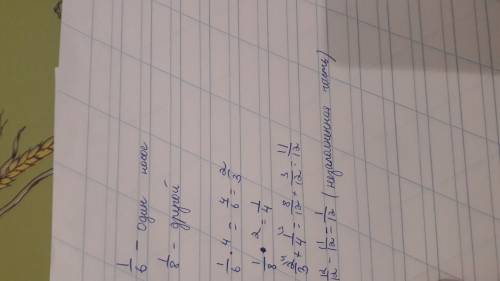 1/6 – один насос
1/8 – другой
1/6 · 4 = 4/6 = 2/3
1/8 · 2 = 1/4
2/3 + 1/4 = 8/12 + 3/12 = 11/12
12/12 - 1/12 = 1/12 (незаполненная часть)